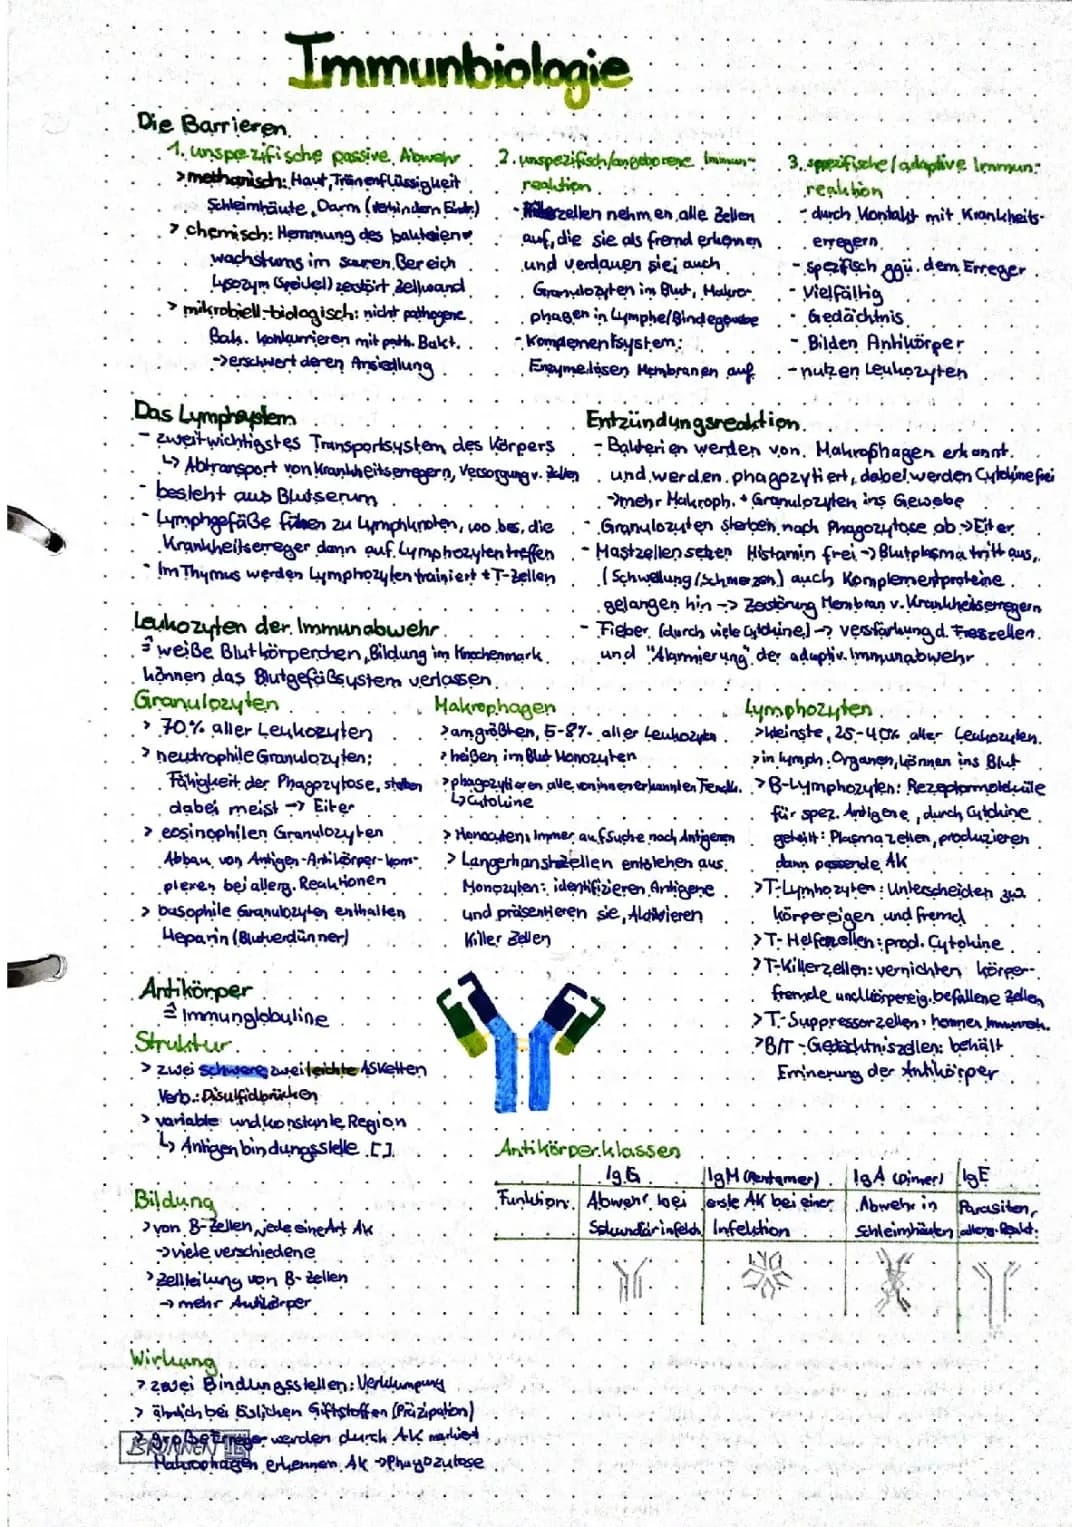 Immunbiologie
Die Barrieren
1. unspezifische passive Abwehr
> mechanisch: Haut, Tränenflüssigkeit
Schleimhäute, Darm (verhindern Eindr.)
> chemisch: Hemmung des bakterien-
wachstums im sauren Bereich
Lysozym (Speichel) zerstört Zellwand
> mikrobiell-biologisch: nicht pathogene
Bak. konkurrieren mit path. Bakt.
-> erschwert deren Ansiedlung
2. unspezifisch/angeborene Immun-
reaktion
zellen nehmen alle Zellen
auf, die sie als fremd erkennen
und verdauen sie; auch
Granulozyten im Blut, Makro-
phagen in Lymphe/Bindegewebe
- Komplementsystem:
Enzyme lösen Membranen auf
3. spezifische/adaptive Immun-
reaktion
- durch Kontakt mit Krankheits-
erregern
- spezifisch ggü. dem Erreger
- Vielfältig
- Gedächtnis
- Bilden Antikörper
- nutzen Leukozyten
Das Lymphsystem
- zweitwichtigstes Transportsystem des Körpers
↳ Abtransport von Krankheitserregern, Versorgung v. Zellen
- besteht aus Blutserum
- Lymphgefäße führen zu Lymphknoten, wo bes. die
Krankheitserreger dann auf Lymphozyten treffen
- Im Thymus werden Lymphozyten trainiert + T-Zellen
Entzündungsreaktion
- Bakterien werden von Makrophagen erkannt
und werden phagozytiert, dabei werden Cytokine frei
-> mehr Makroph. + Granulozyten ins Gewebe
- Granulozyten sterben nach Phagozytose ab -> Eiter
- Mastzellen setzen Histamin frei -> Blutplasma tritt aus,
(Schwellung/Schmerzen) auch Komplementproteine
gelangen hin -> Zerstörung Membran v. Krankheitserregern
- Fieber (durch viele Cytokine) -> verstärkung d. Fresszellen
und "Alarmierung" der adaptiv. Immunabwehr
Leukozyten der Immunabwehr
≙ weiße Blutkörperchen, Bildung im Knochenmark
können das Blutgefäßsystem verlassen
Granulozyten
> 70% aller Leukozyten
> neutrophile Granulozyten:
Fähigkeit der Phagozytose, sterben
dabei meist -> Eiter
> eosinophilen Granulozyten
Abbau von Antigen-Antikörper-kom-
plexen bei allerg. Reaktionen
> basophile Granulozyten enthalten
Heparin (Blutverdünner)
Makrophagen
> am größten, 5-8% aller Leukozyten
> heißen im Blut Monozyten
> phagozytieren alle von ihnen erkannten Fremdk.
↳ Cytokine
> Monocyten: immer auf Suche nach Antigenen
> Langerhanszellen entstehen aus
Monozyten: identifizieren Antigene
und präsentieren sie, Aktivieren
Killer Zellen
Lymphozyten
> kleinste, 25-40% aller Leukozyten
> in lymph. Organen, können ins Blut
> B-Lymphozyten: Rezeptormoleküle
für spez. Antigene, durch Cytokine
geteilt: Plasmazellen, produzieren
dann passende AK
> T-Lymhozyten: Unterscheiden zw.
körpereigen und fremd
> T-Helferzellen: prod. Cytokine
> T-Killerzellen: vernichten körper-
fremde und körpereig. befallene Zellen
> T-Suppressorzellen: hemmen Immunreak.
> B/T-Gedächtniszellen: behält
Erinnerung der Antikörper
Antikörper
≙ Immunglobuline
Struktur
> zwei schwere, zwei leichte ASKetten
Verb.: Disulfidbrücken
> variable und konstante Region
↳ Antigenbindungsstelle []
Bildung
> von B-Zellen, jede eine Art AK
-> viele verschiedene
> Zellteilung von B-Zellen
-> mehr Antikörper
Antikörperklassen
IgG IgM (Pentamer) IgA (Dimer) IgE
Funktion: Abwehr bei erste AK bei einer Abwehr in Parasiten,
Sekundärinfekt. Infektion Schleimhäuten allerg. Reakt.
Wirkung
> zwei Bindungsstellen: Verklumpung
> ähnlich bei löslichen Giftstoffen (Präzipation)
> große Erreger werden durch AK markiert
BRUNNEN
Makrophagen erkennen AK -> Phagozytose